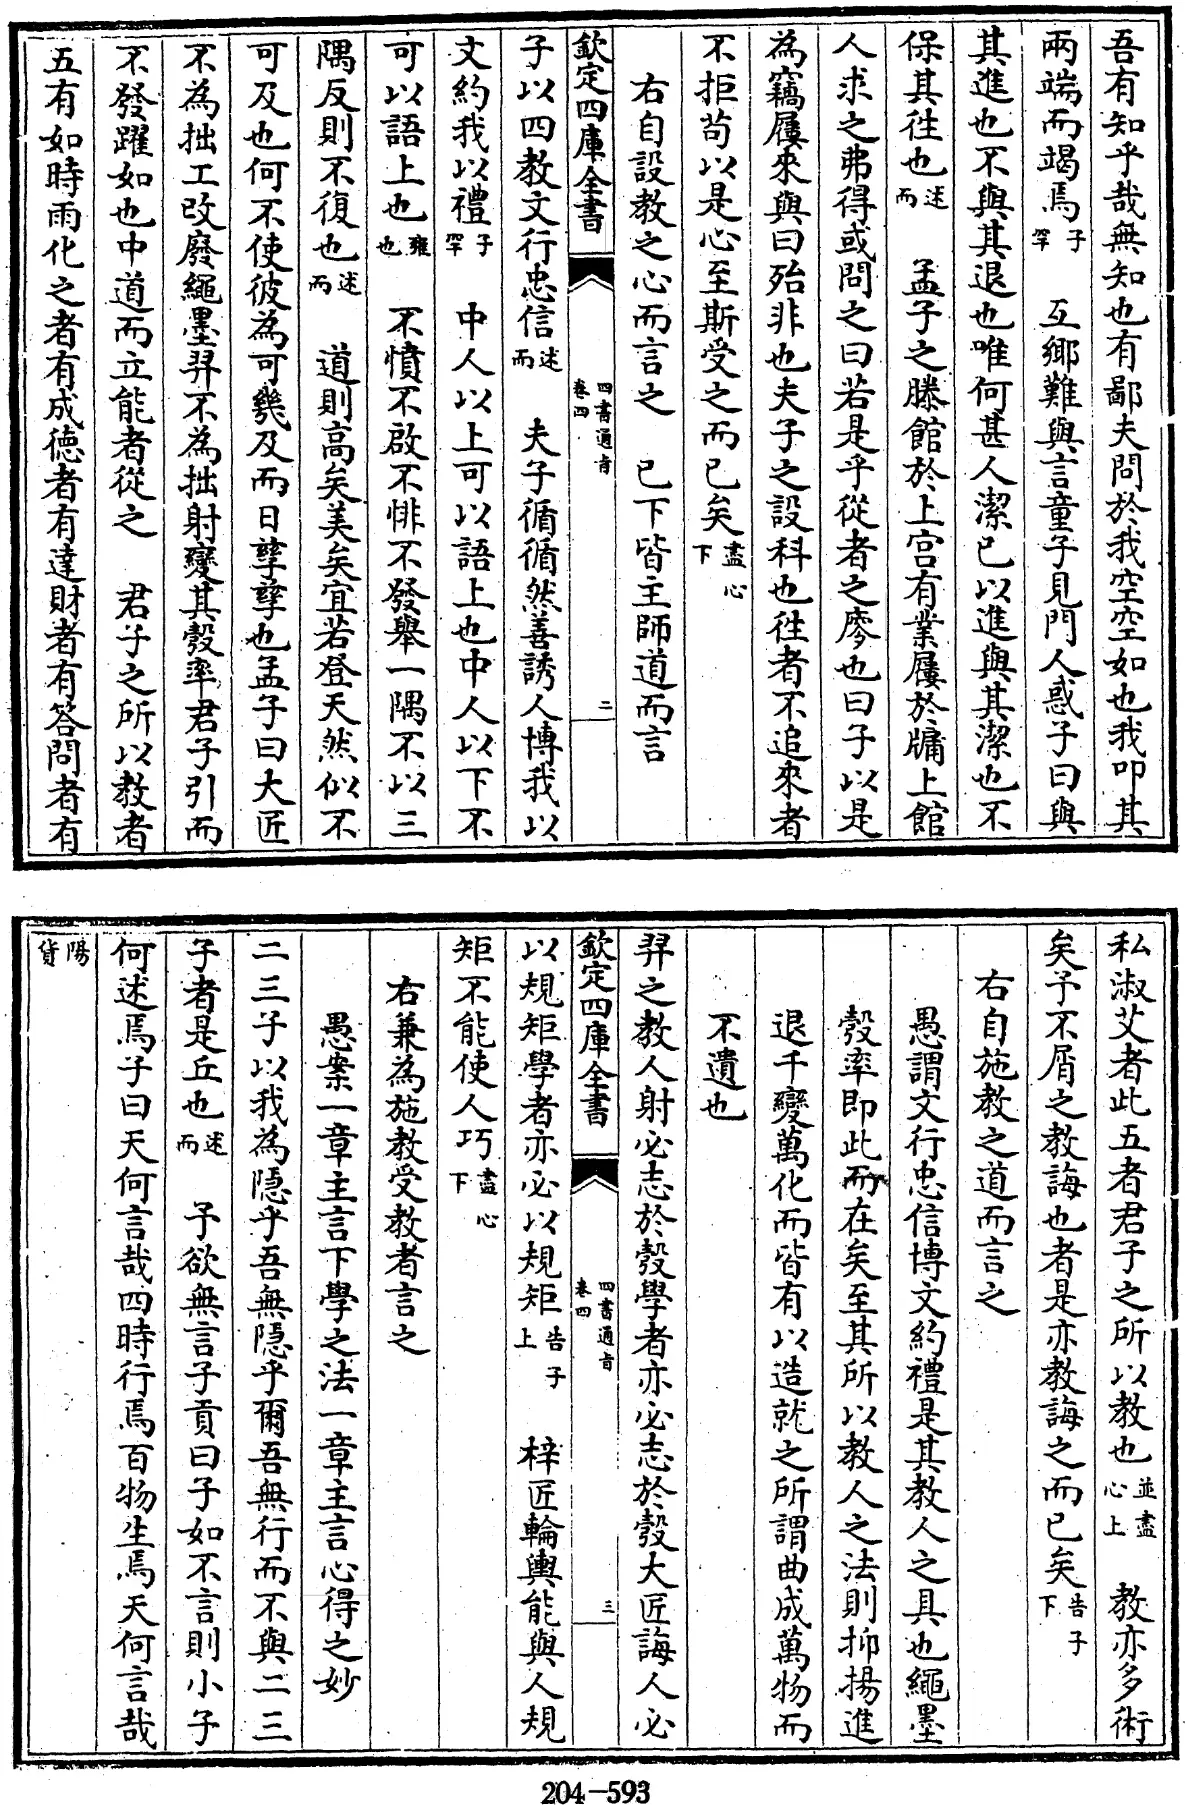 吾有知乎哉無知也有鄙夫問於我空空如也我叩其
兩端而竭焉子罕　互鄉難與言童子見門人惑子曰與
其進也不與其退也唯何甚人潔己以進與其潔也不
保其往也述而　孟子之滕館於上宫有業屨於牖上館
人求之弗得或問之曰若是乎從者之廖也曰子以是
為竊屨來與曰殆非也夫子之設科也往者不追來者
不拒苟以是心至斯受之而已矣盡心下
右自設教之心而言之　已下皆主師道而言
欽定四庫全書　四書通旨卷四　二
子以四教文行忠信述而　夫子循循然善誘人博我以
文約我以禮子罕　中人以上可以語上也中人以下不
可以語上也雍也　不憤不啟不悱不發舉一隅不以三
隅反則不復也述而　道則高矣美矣宜若登天然似不
可及也何不使彼為可幾及而日孳孳也孟子曰大匠
不為拙工改廢繩墨羿不為拙射變其彀率君子引而
不發躍如也中道而立能者從之　君子之所以教者
五有如時雨化之者有成德者有達財者有答問者有
私淑艾者此五者君子之所以教也並盡心上　教亦多術
矣予不屑之教誨也者是亦教誨之而已矣告子下
右自施教之道而言之
愚謂文行忠信博文約禮是其教人之具也繩墨
彀率即此而在矣至其所以教人之法則抑揚進
退千變萬化而皆有以造就之所謂曲成萬物而
不遺也
羿之教人射必志於彀學者亦必志於彀大匠誨人必
欽定四庫全書　四書通旨卷四　三
以規矩學者亦必以規矩告子上　梓匠輪輿能與人規
矩不能使人巧盡心下
右兼為施教受教者言之
愚案一章主言下學之法一章主言心得之妙
二三子以我為隱乎吾無隱乎爾吾無行而不與二三
子者是丘也述而　予欲無言子貢曰子如不言則小子
何述焉子曰天何言哉四時行焉百物生焉天何言哉
陽貨
204-593